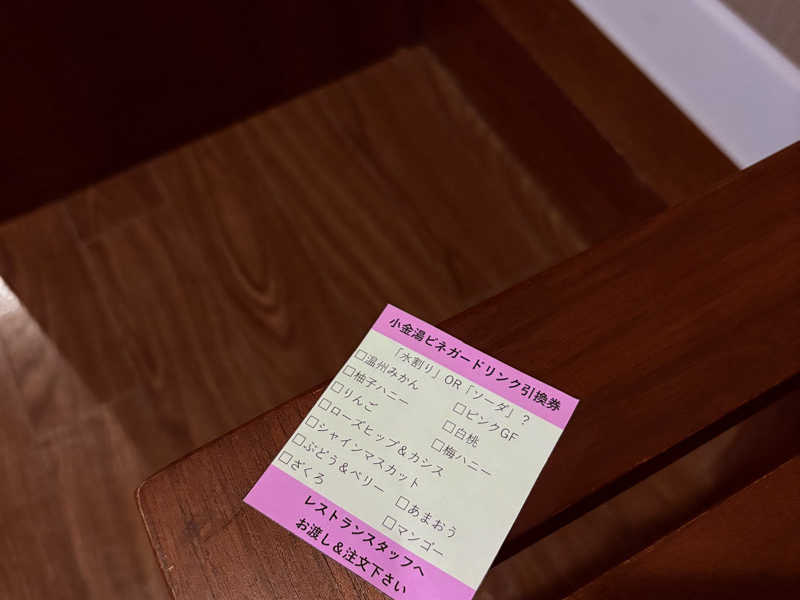 小金湯ビネガードリンク引換券
「水割り」OR「ソーダ」?
□温州みかん □ピンクGF
□柚子ハニー □白桃
□りんご □梅ハニー
□ローズヒップ&カシス
□シャインマスカット
□ぶどう&ベリー □あまおう
□ざくろ □マンゴー
レストランスタッフへ
お渡し&注文下さい